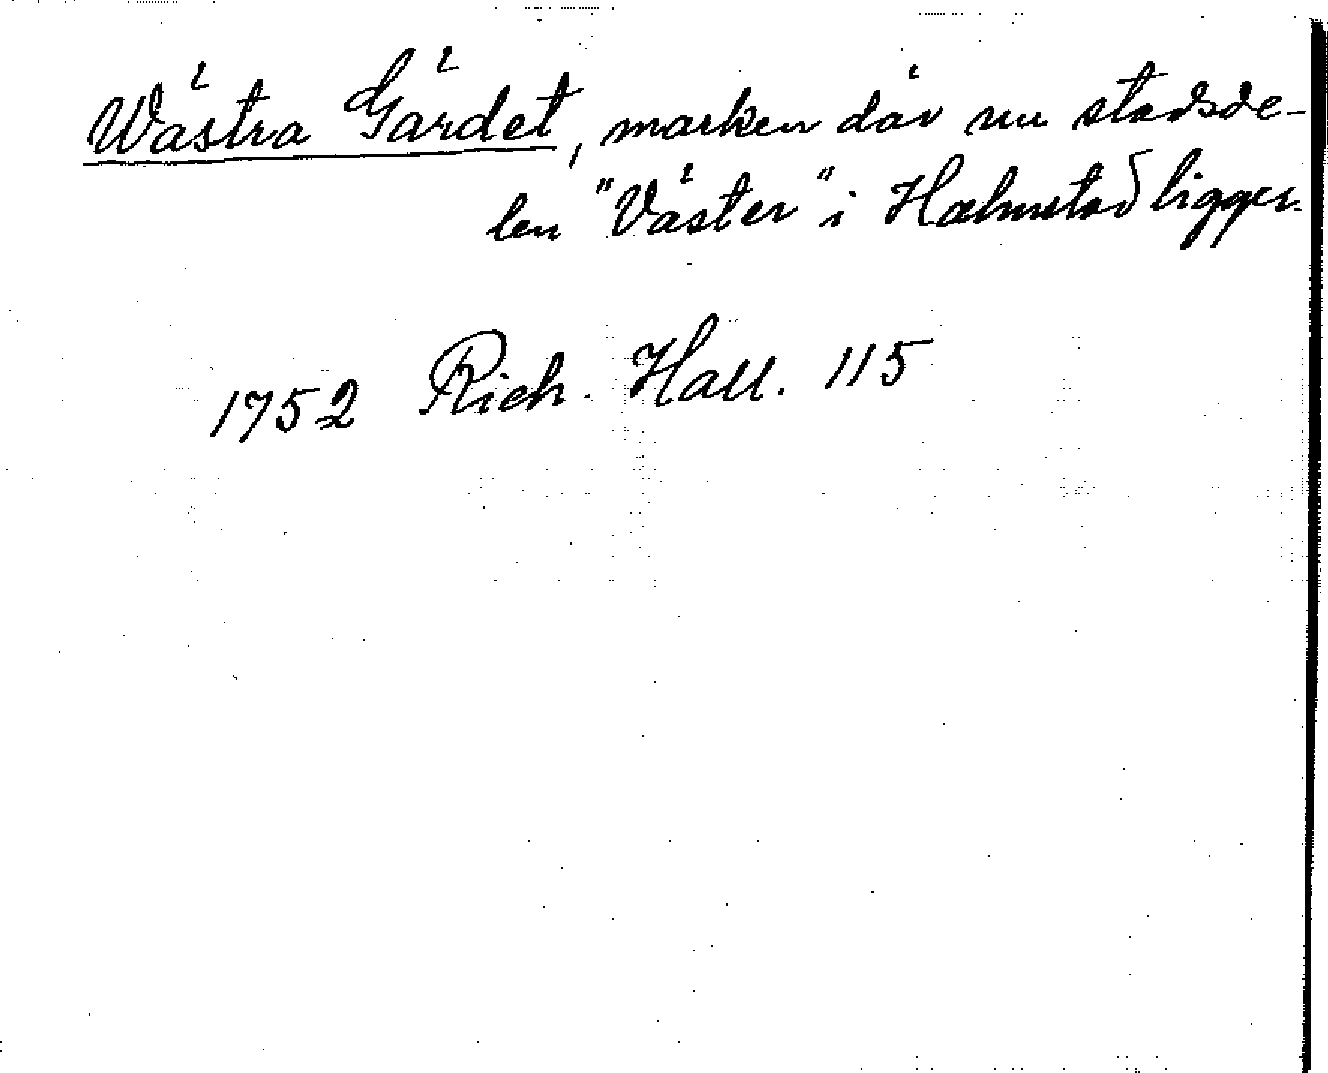 Wästra Gärdet, marken där nu stadsde-
len "Väster" i Halmstad ligger.
1752 Rich. Hall. 115